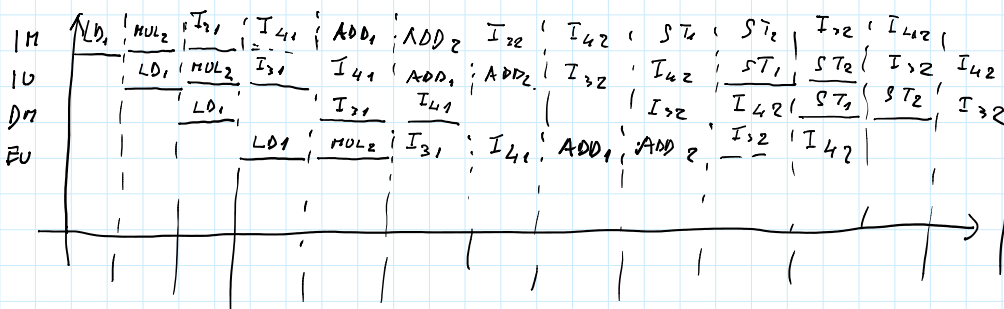 IM LD1 MUL2 I31 I41 ADD1 ADD2 I32 I42 ST1 ST2 I32 I42
IU LD1 MUL2 I31 I41 ADD1 ADD2 I32 I42 ST1 ST2 I32 I42
DM LD1 I31 I41 I32 I42 ST1 ST2 I32
EU LD1 MUL2 I31 I41 ADD1 ADD2 I32 I42